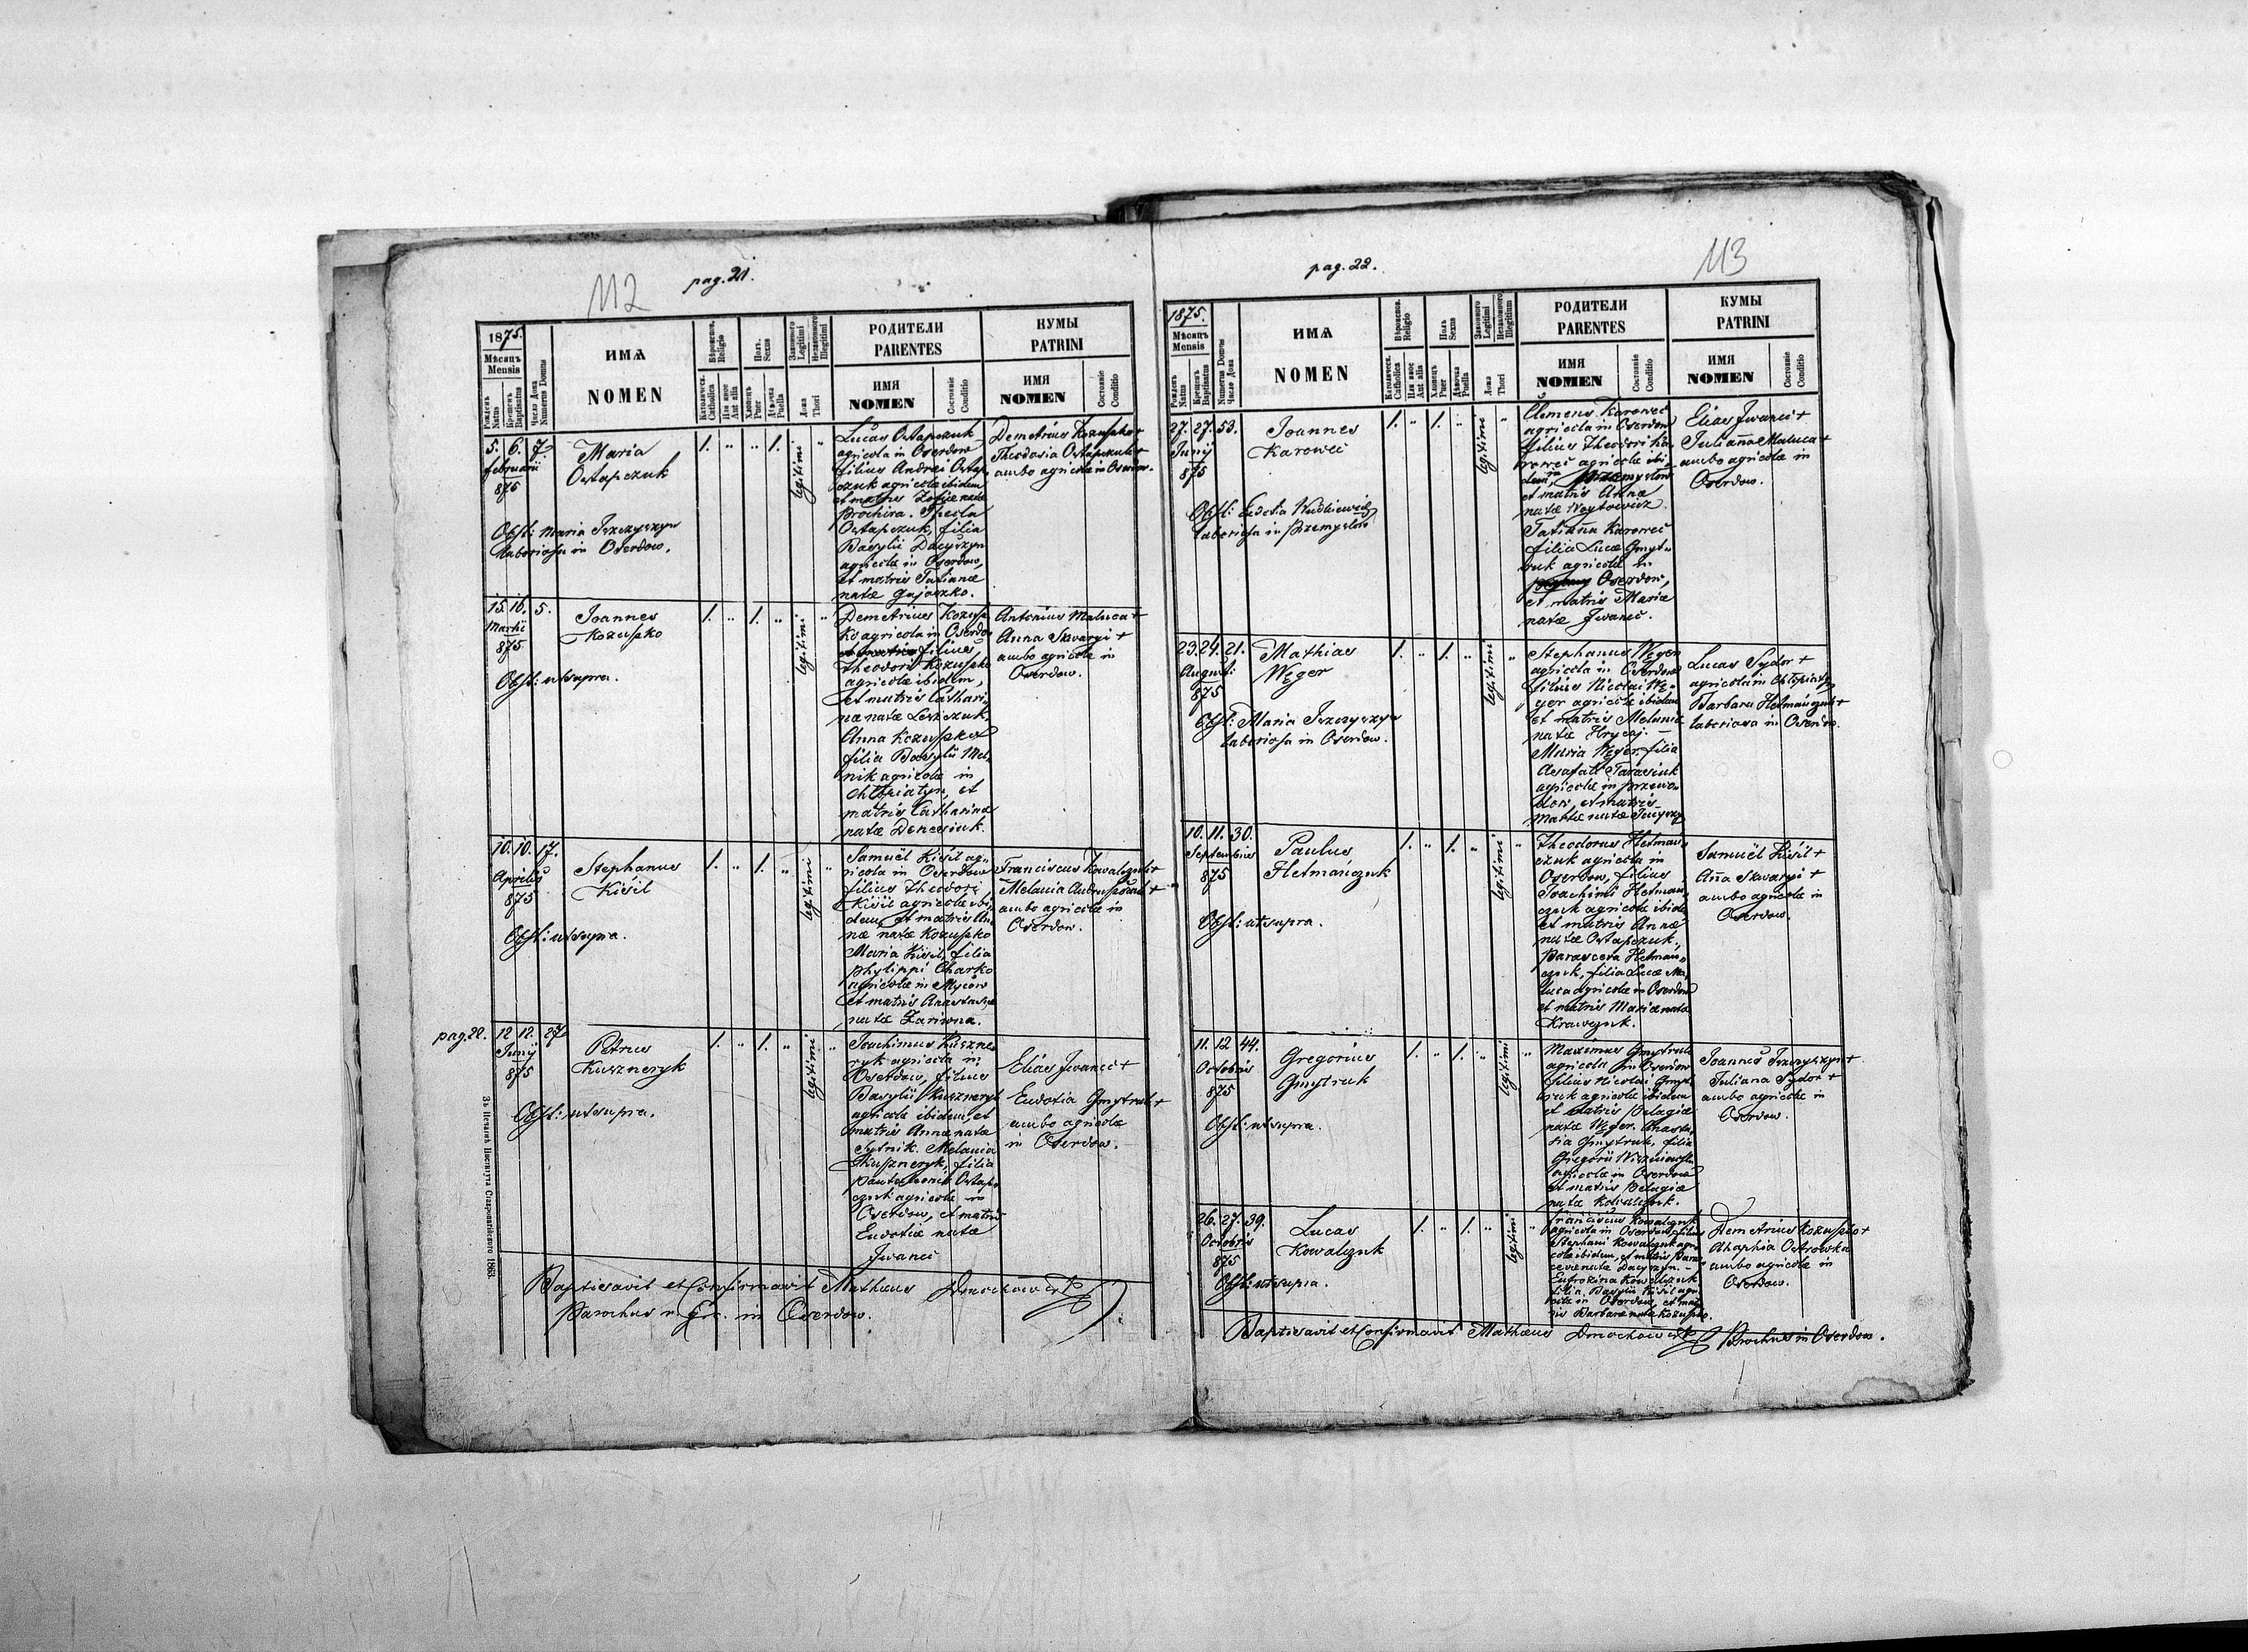 112
pag. 21.
1875.
Мѣсяцъ
Mensis
Рожденъ
Natus
Крещенъ
Baptisatus
Число Дома
Numerus Domus
ИМѦ
NOMEN
Вѣроиспов.
Religio
Католическ.
Catholica
Или иное
Aut alia
Полъ.
Sexus
Хлопецъ
Puer
Дѣвочка
Puella
Законного
Legitimi
Незаконного
Illegitimi
Ложа
Thori
РОДИТЕЛИ
PARENTES
ИМЯ
NOMEN
Состояніе
Conditio
КУМЫ
PATRINI
ИМЯ
NOMEN
Состояніе
Conditio
5. 6. 7
februarii
875
Maria
Ostapczuk
1. " " 1. legitimi "
Obst: Maria Iszczyszyn
laboriosa in Oserdow.
Lucas Ostapczuk
agricola in Oserdow
filius Andrei Ostap-
czuk agricolae ibidem
et matris Zofiae natae
Prochira. Thecla
Ostapczuk, filia
Basylii Daczyszyn
agricolae in Oserdow,
et matris Tatianae
natae Gujaszko.
Demetrius Kozuszko +
Theodosia Ostapczuk +
ambo agricolae in Oserdow.
15. 16. 5.
Martii
875
Joannes
Kozuszko
1. " 1. " legitimi "
Obst: ut supra.
Demetrius Kozusz-
ko agricola in Oserdo
filius
Theodori Kozuszko
agricolae ibidem,
et matris Cathari-
nae natae Leszczuk.
Anna Kozuszko
filia Basylii Mel-
nik agricolae in
Chłopiatyn, et
matris Catharinae
natae Denesiuk.
Antonius Maluca +
Anna Skvaryi +
ambo agricolae in
Oserdow.
10. 10. 17.
Aprilis
875
Stephanus
Kisil
1. " 1. " legitimi "
Obst: ut supra.
Samuël Kisil ag-
ricola in Oserdow
filius Theodori
Kisil agricolae ibi-
dem, et matris An-
nae natae Kozuszko
Maria Kisil, filia
Phylippi Charko
agricolae in Mycow
et matris Anastasiae
natae Zariwna.
Franciscus Kowalczuk +
Melania +
ambo agricolae in
Oserdow.
pag. 22. 12 12. 27
Junij
875
Petrus
Kuszneryk
1. " 1. " legitimi "
Obst: ut supra.
Joachimus Kuszne-
ryk agricola in
Oserdow, filius
Basylii Kuszneryk
agricolae ibidem, et
matris Annae natae
Sytnik. Melania
Kuszneryk, filia
Panteleonis Ostap-
czuk agricolae in
Oserdow, et matris
Eudotiae natae
Iwanci
Elias Iwanci +
Eudotia Gmytruk +
ambo agricolae
in Oserdow.
Baptisavit et Confirmavit Mathaeus Dmochowski
Parochus r. gr. in Oserdow.
Зъ Печатнѣ Института Ставропигійского 1863.
113
pag. 22.
1875.
Мѣсяцъ
Mensis
Рожденъ
Natus
Крещенъ
Baptisatus
Numerus Domus
Число Дома
ИМѦ
NOMEN
Вѣроиспов.
Religio
Католическ.
Catholica
Или иное
Aut alia
Полъ
Sexus
Хлопецъ
Puer
Дѣвочка
Puella
Законного
Legitimi
Незаконного
Illegitimi
Ложа
Thori
РОДИТЕЛИ
PARENTES
ИМЯ
NOMEN
Состояніе
Conditio
КУМЫ
PATRINI
ИМЯ
NOMEN
Состояніе
Conditio
27. 27. 53.
Junij
875
Joannes
Karoweć
1. " 1. " legitimi "
Obst: Eudotia Kudkiewicz
laboriosa in Przemysłow
Clemens Karoweć
agricola in Oserdow
filius Theodori Ka-
roweć agricolae ibi-
dem, Przemysłow
et matris Annae
natae Woytowicz.
Tatianna Karoweć
filia Lucae Gmyt-
ruk agricolae in
Oserdow,
et matris Mariae
natae Iwaneć.
Elias Iwanci +
Julianna Maluca +
ambo agricolae in
Oserdow.
23. 24. 21.
August:
875
Mathias
Węger
1. " 1. " legitimi "
Obst: Maria Iszczyszyn
laboriosa in Oserdow.
Stephanus Węger
agricola in Oserdow
filius Nicolai Wę-
ger agricolae ibidem
et matris Melaniae
natae Hrycaj. -
Maria Węger, filia
Asafati Tarasiuk
agricolae in Przewo-
dow, et matris
natae
Lucas Sydor +
agricola in Chłopiatyn
Barbara Hetmańczuk +
laboriosa in Oserdow.
10. 11. 30.
Septembris
875
Paulus
Hetmańczuk
1. " 1. " legitimi "
Obst: ut supra.
Theodorus Hetmań-
czuk agricola in
Oserdow, filius
Joachimi Hetmań-
czuk agricolae ibidem
et matris Annae
natae Ostapczuk,
Parasceva Hetmań-
czuk, filia Lucae Ma-
luca agricolae in Oserdow
et matris Mariae natae
Krawczuk.
Samuël Kisil +
Anna Skvaryi +
ambo agricolae in
Oserdow.
11. 12 44.
Octobris
875
Gregorius
Gmytruk
1. " 1. " legitimi "
Obst: ut supra.
Maximus Gmytruk
agricola in Oserdow
filius Nicolai Gmyt-
ruk agricolae ibidem
et matris Pelagiae
natae Węger. Anasta-
sia Gmytruk, filia
Gregorii
agricolae in Oserdow
et matris Pelagiae
natae Kowalczuk.
Joannes Iszczyszyn +
Juliana Sydor +
ambo agricolae in
Oserdow.
26. 27. 39.
Octobris
875
Lucas
Kowalczuk
1. " 1. " legitimi "
Obst: ut supra.
Franciscus Kowalczuk
agricola in Oserdow, filius
Stephani Kowalczuk agri-
colae ibidem, et matris Paras-
cevae natae Daczyszyn. -
Eufrozina Kowalczuk
filia Basylii Kisil agri-
colae in Oserdow, et mat-
ris Barbarae natae Kozuszko.
Demetrius Kozuszko +
Ahaphia Ostrowka
ambo agricolae in
Oserdow.
Baptisavit et Confirmavit Mathaeus Dmochowski Parochus in Oserdow.